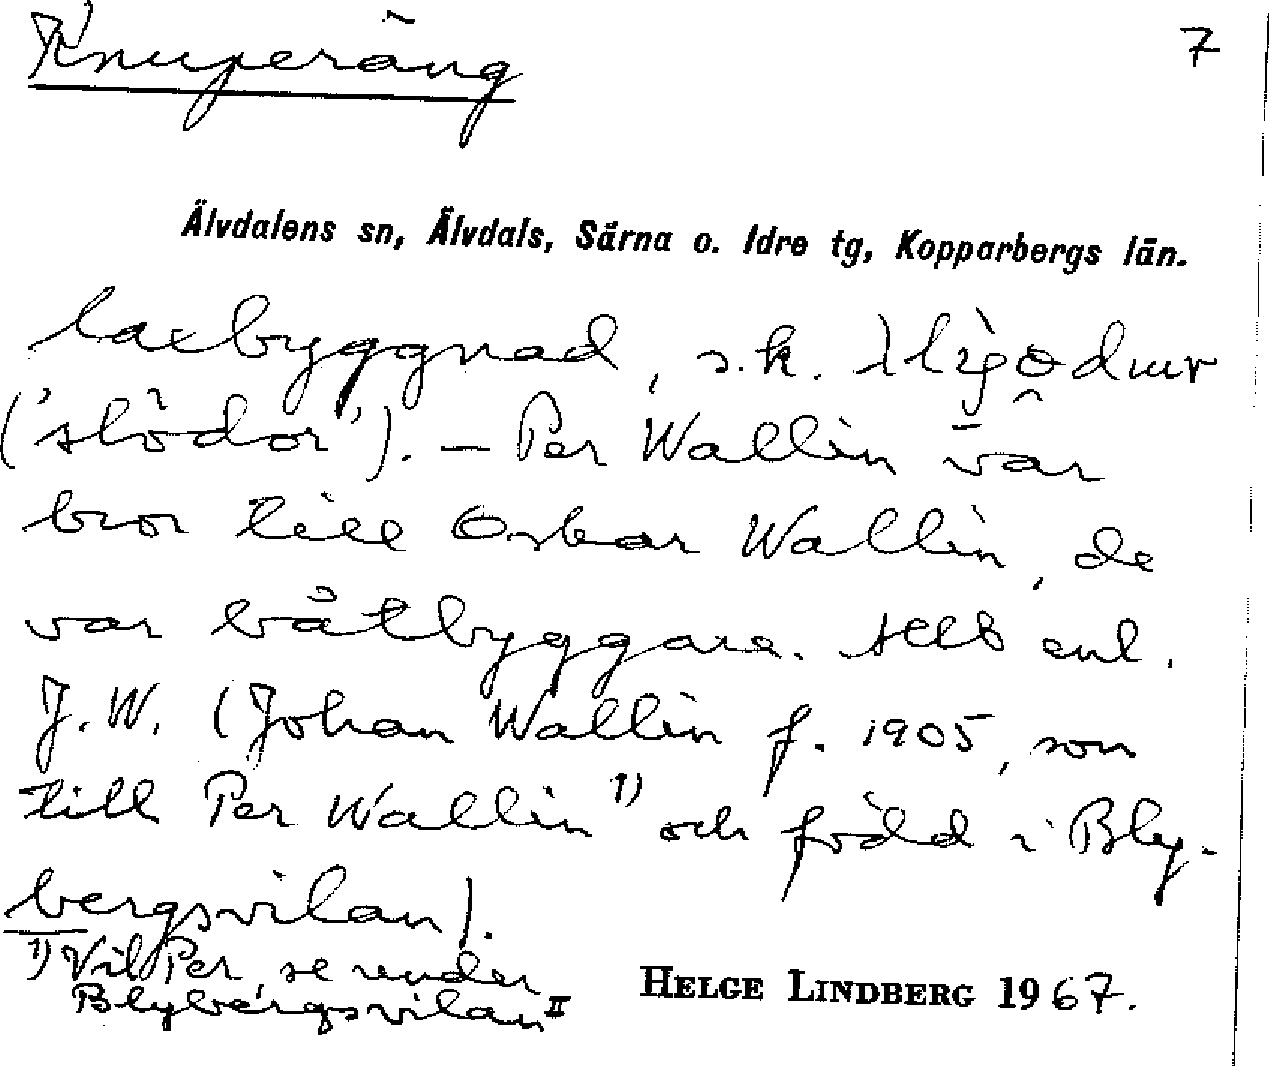 Knuperäng 7
Älvdalens sn, Älvdals, Särna o. Idre tg, Kopparbergs län.
laxbyggnad, s.k.
('slödor'). – Per Wallin var
bror till Oskar Wallin, de
var båtbyggare. enl.
J.W. (Johan Wallin f. 1905, son
till Per Wallin 1) och född i Bly-
bergsvilan).
1) Vil Per, se under
Blybergsvilan II
HELGE LINDBERG 1967.